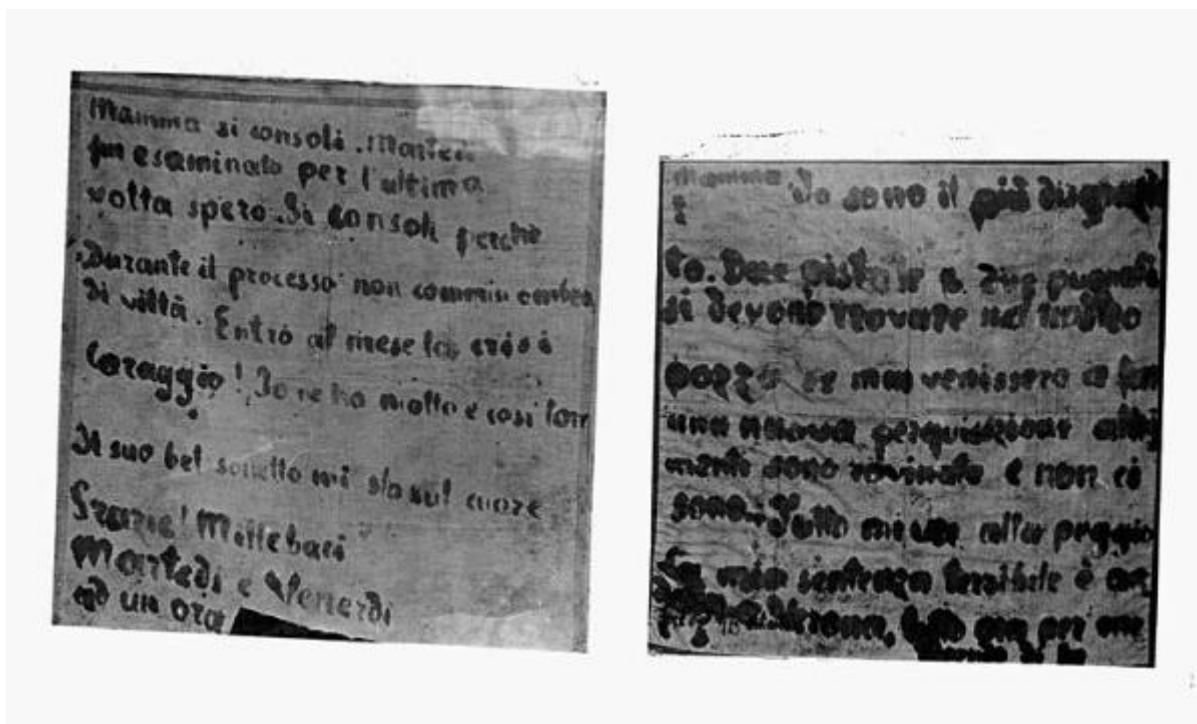 Mamma si consoli. Martedi
fui esaminato per l'ultima
volta spero. Si consoli perchè
Durante il processo non commisi
di viltà. Entro al mese la crisi
Coraggio! Io ne ho molto e così
Il suo bel sonetto mi sta sul cuore
Grazie! Mille baci
Martedi e Venerdi
ad un ora
Mamma Io sono il più disgrazia
to. Due pistole e due pugnali
si devono trovare nel nostro
pozzo se mai venissero a
una nuova perquisizione altri
menti sono rovinato e non ci
sono. Tutto mi va alla peggio
La mia sentenza terribile è
Verona,